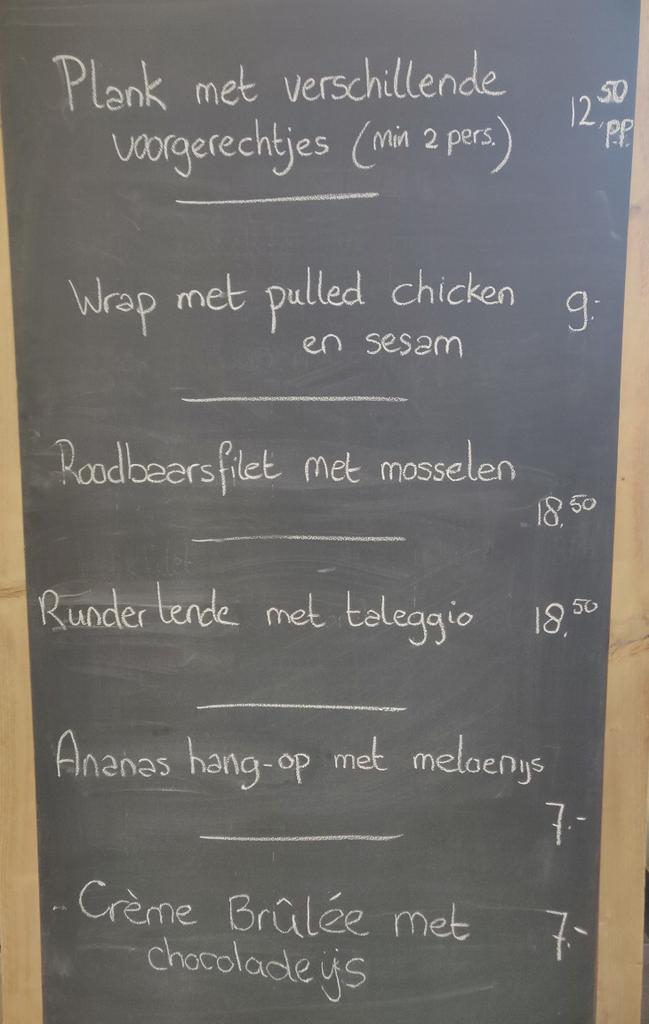 Plank met verschillende
voorgerechtjes (min 2 pers.) 12,50 p.p.
Wrap met pulled chicken 9.-
en sesam
Roodbaarsfilet met mosselen
18,50
Runder lende met taleggio 18,50
Ananas hang-op met meloenijs
7.-
- Crème Brûlée met 7.-
chocoladeijs